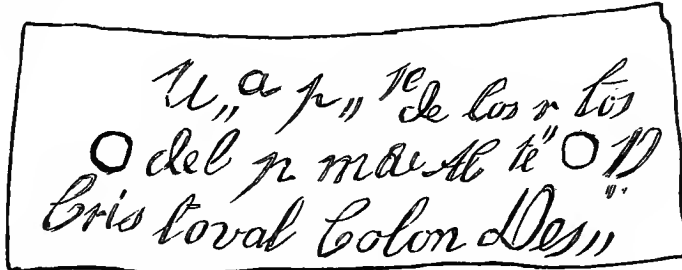 U,,a p,, te de los r tos
del p mer Al te" D
Cristoval Colon Des,,